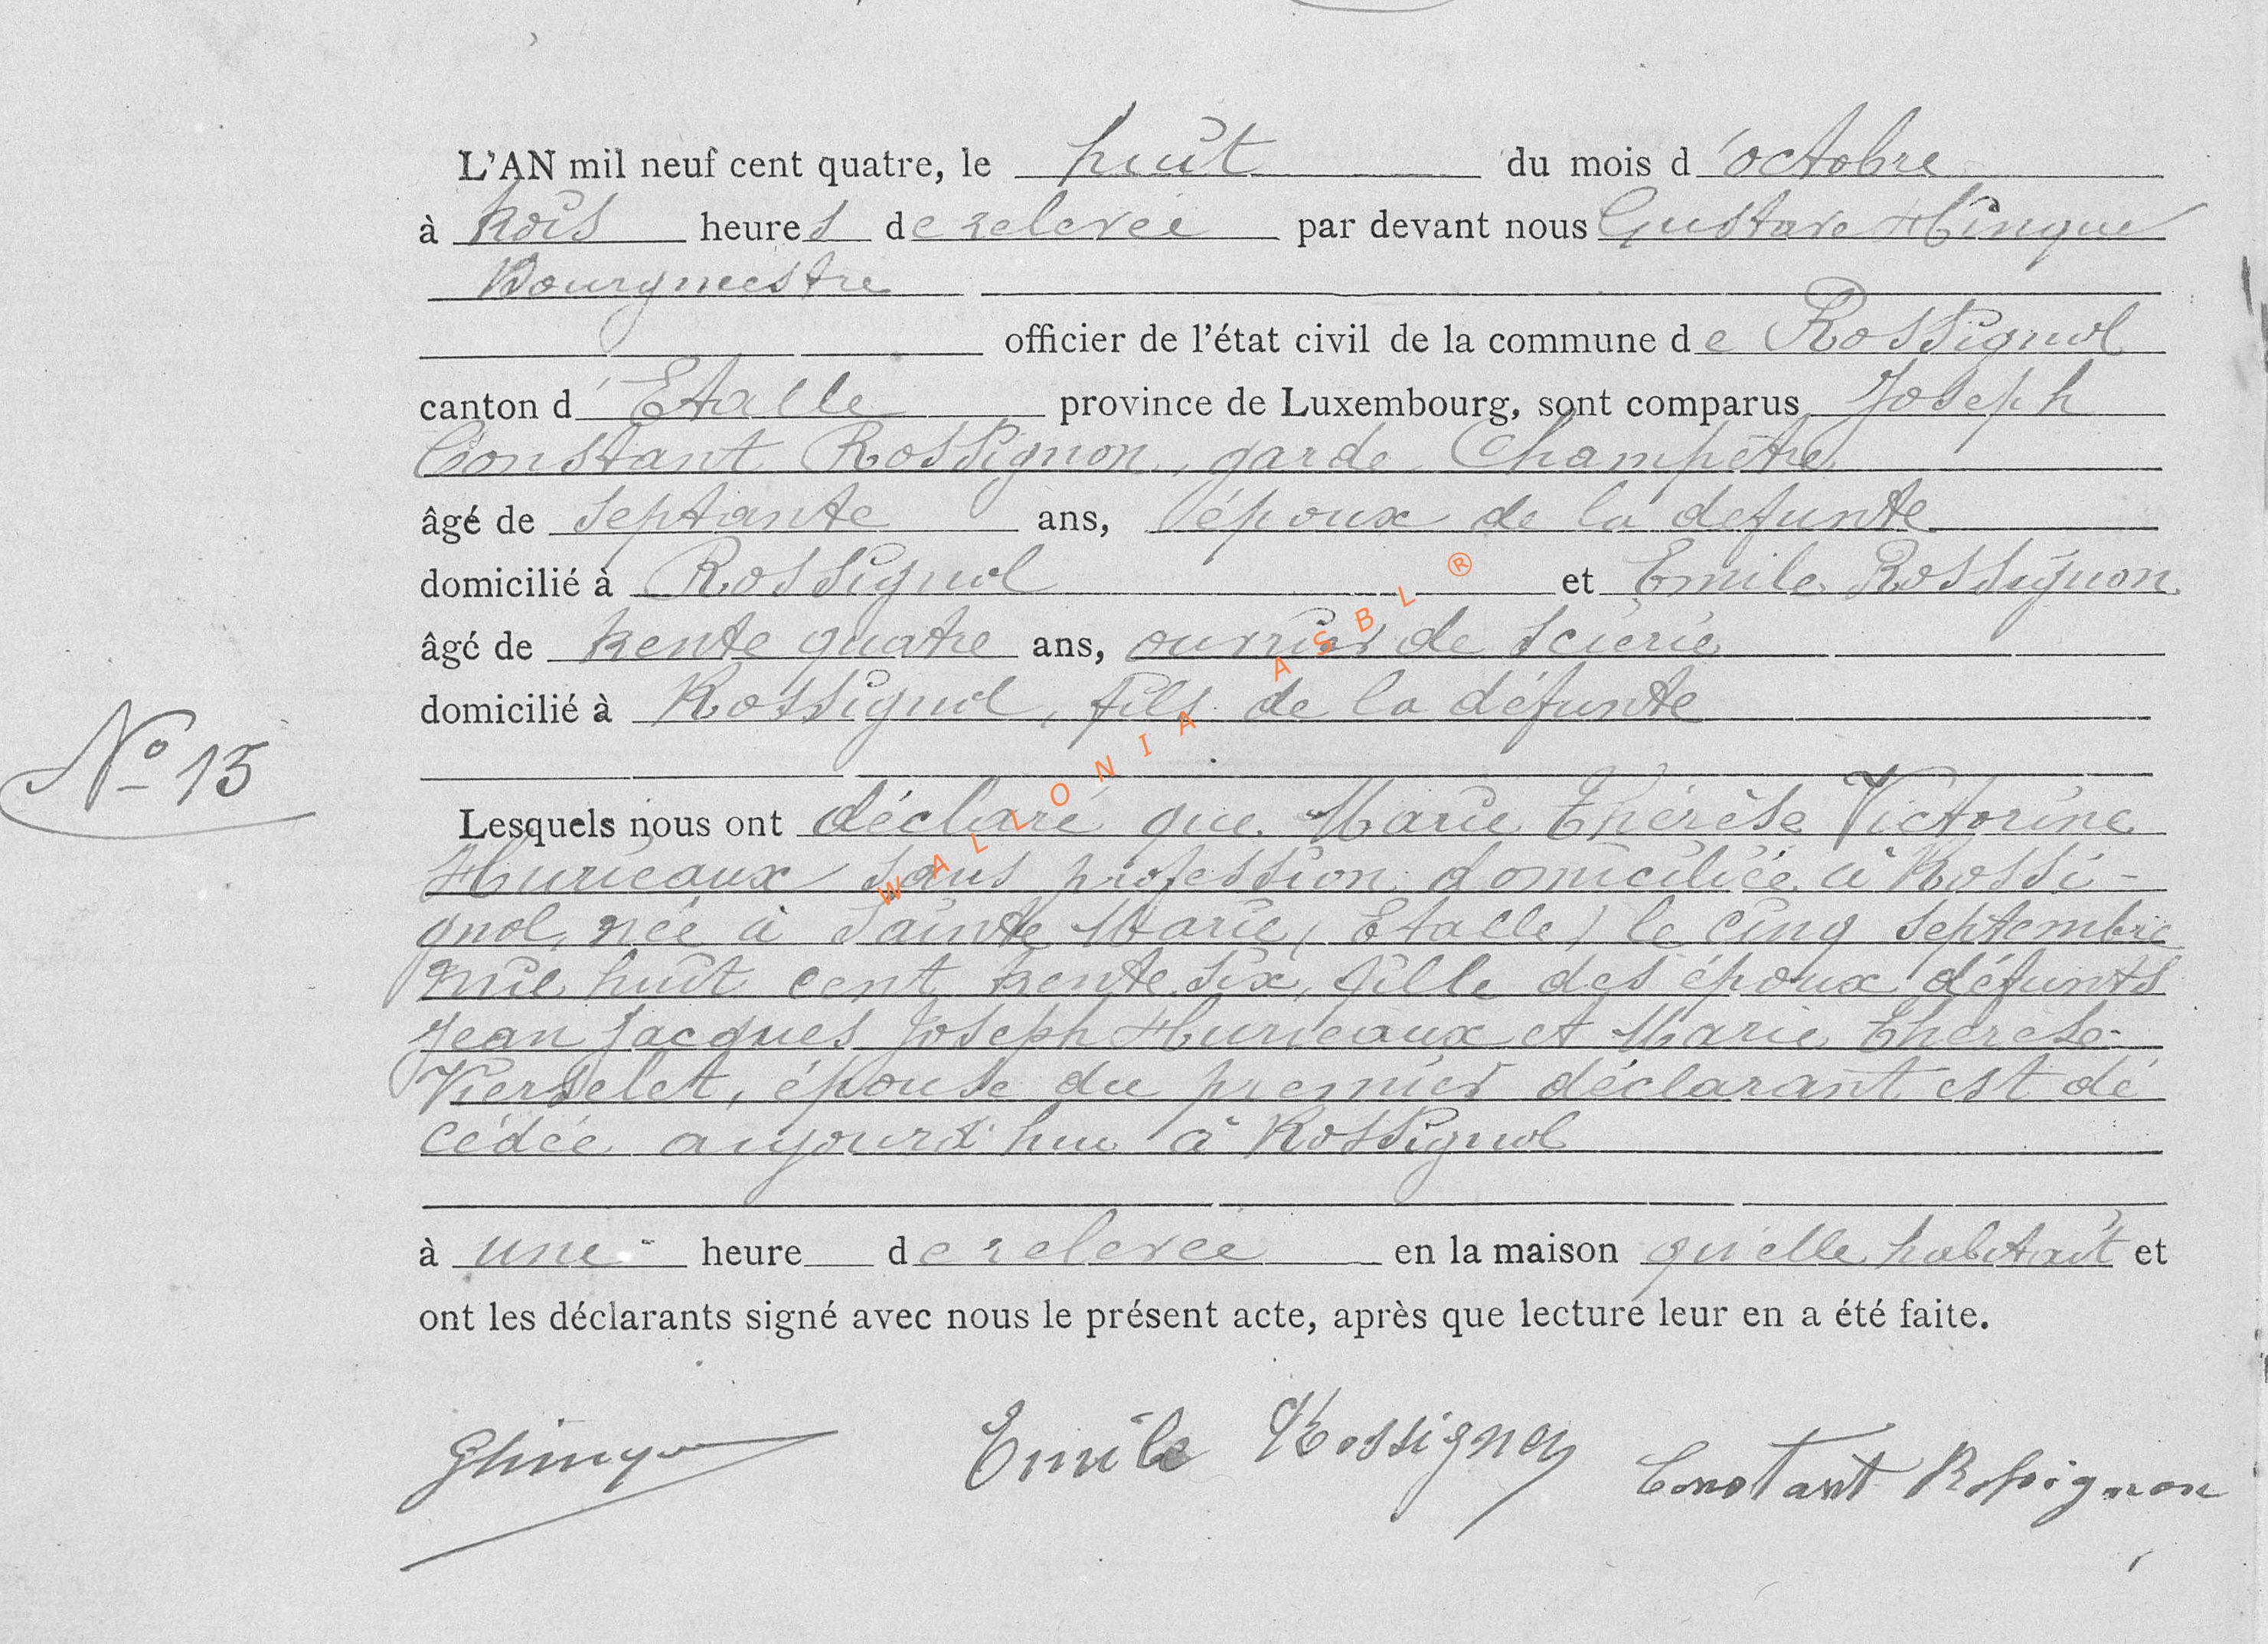 L'AN mil neuf cent quatre, le huit du mois d'octobre
à trois heures de relevée par devant nous Gustave Hinque
Bourgmestre
officier de l'état civil de la commune de Rossignol
canton d'Etalle province de Luxembourg, sont comparus Joseph
Constant Rossignon, garde Champêtre
âgé de septante ans, époux de la defunte
domicilié à Rossignol et Emile Rossignon
âgé de trente quatre ans, ouvrier de scierie
domicilié à Rossignol, fils de la défunte
N° 15
Lesquels nous ont déclaré que Marie Thérèse Victorine
Hurieaux sans profession domiciliée à Rossi-
gnol, née à Sainte Marie (Etalle) le cinq septembre
mil huit cent trente six, fille des époux défunts
Jean Jacques Joseph Hurieaux et Marie Thérèse
épouse du premier déclarant est dé
cédée aujourd'hui à Rossignol
à une heure de relevée en la maison qu'elle habitait et
ont les déclarants signé avec nous le présent acte, après que lecture leur en a été faite.
GHinque Emile Rossignon Constant Rossignon
WALLONIA ASBL ®